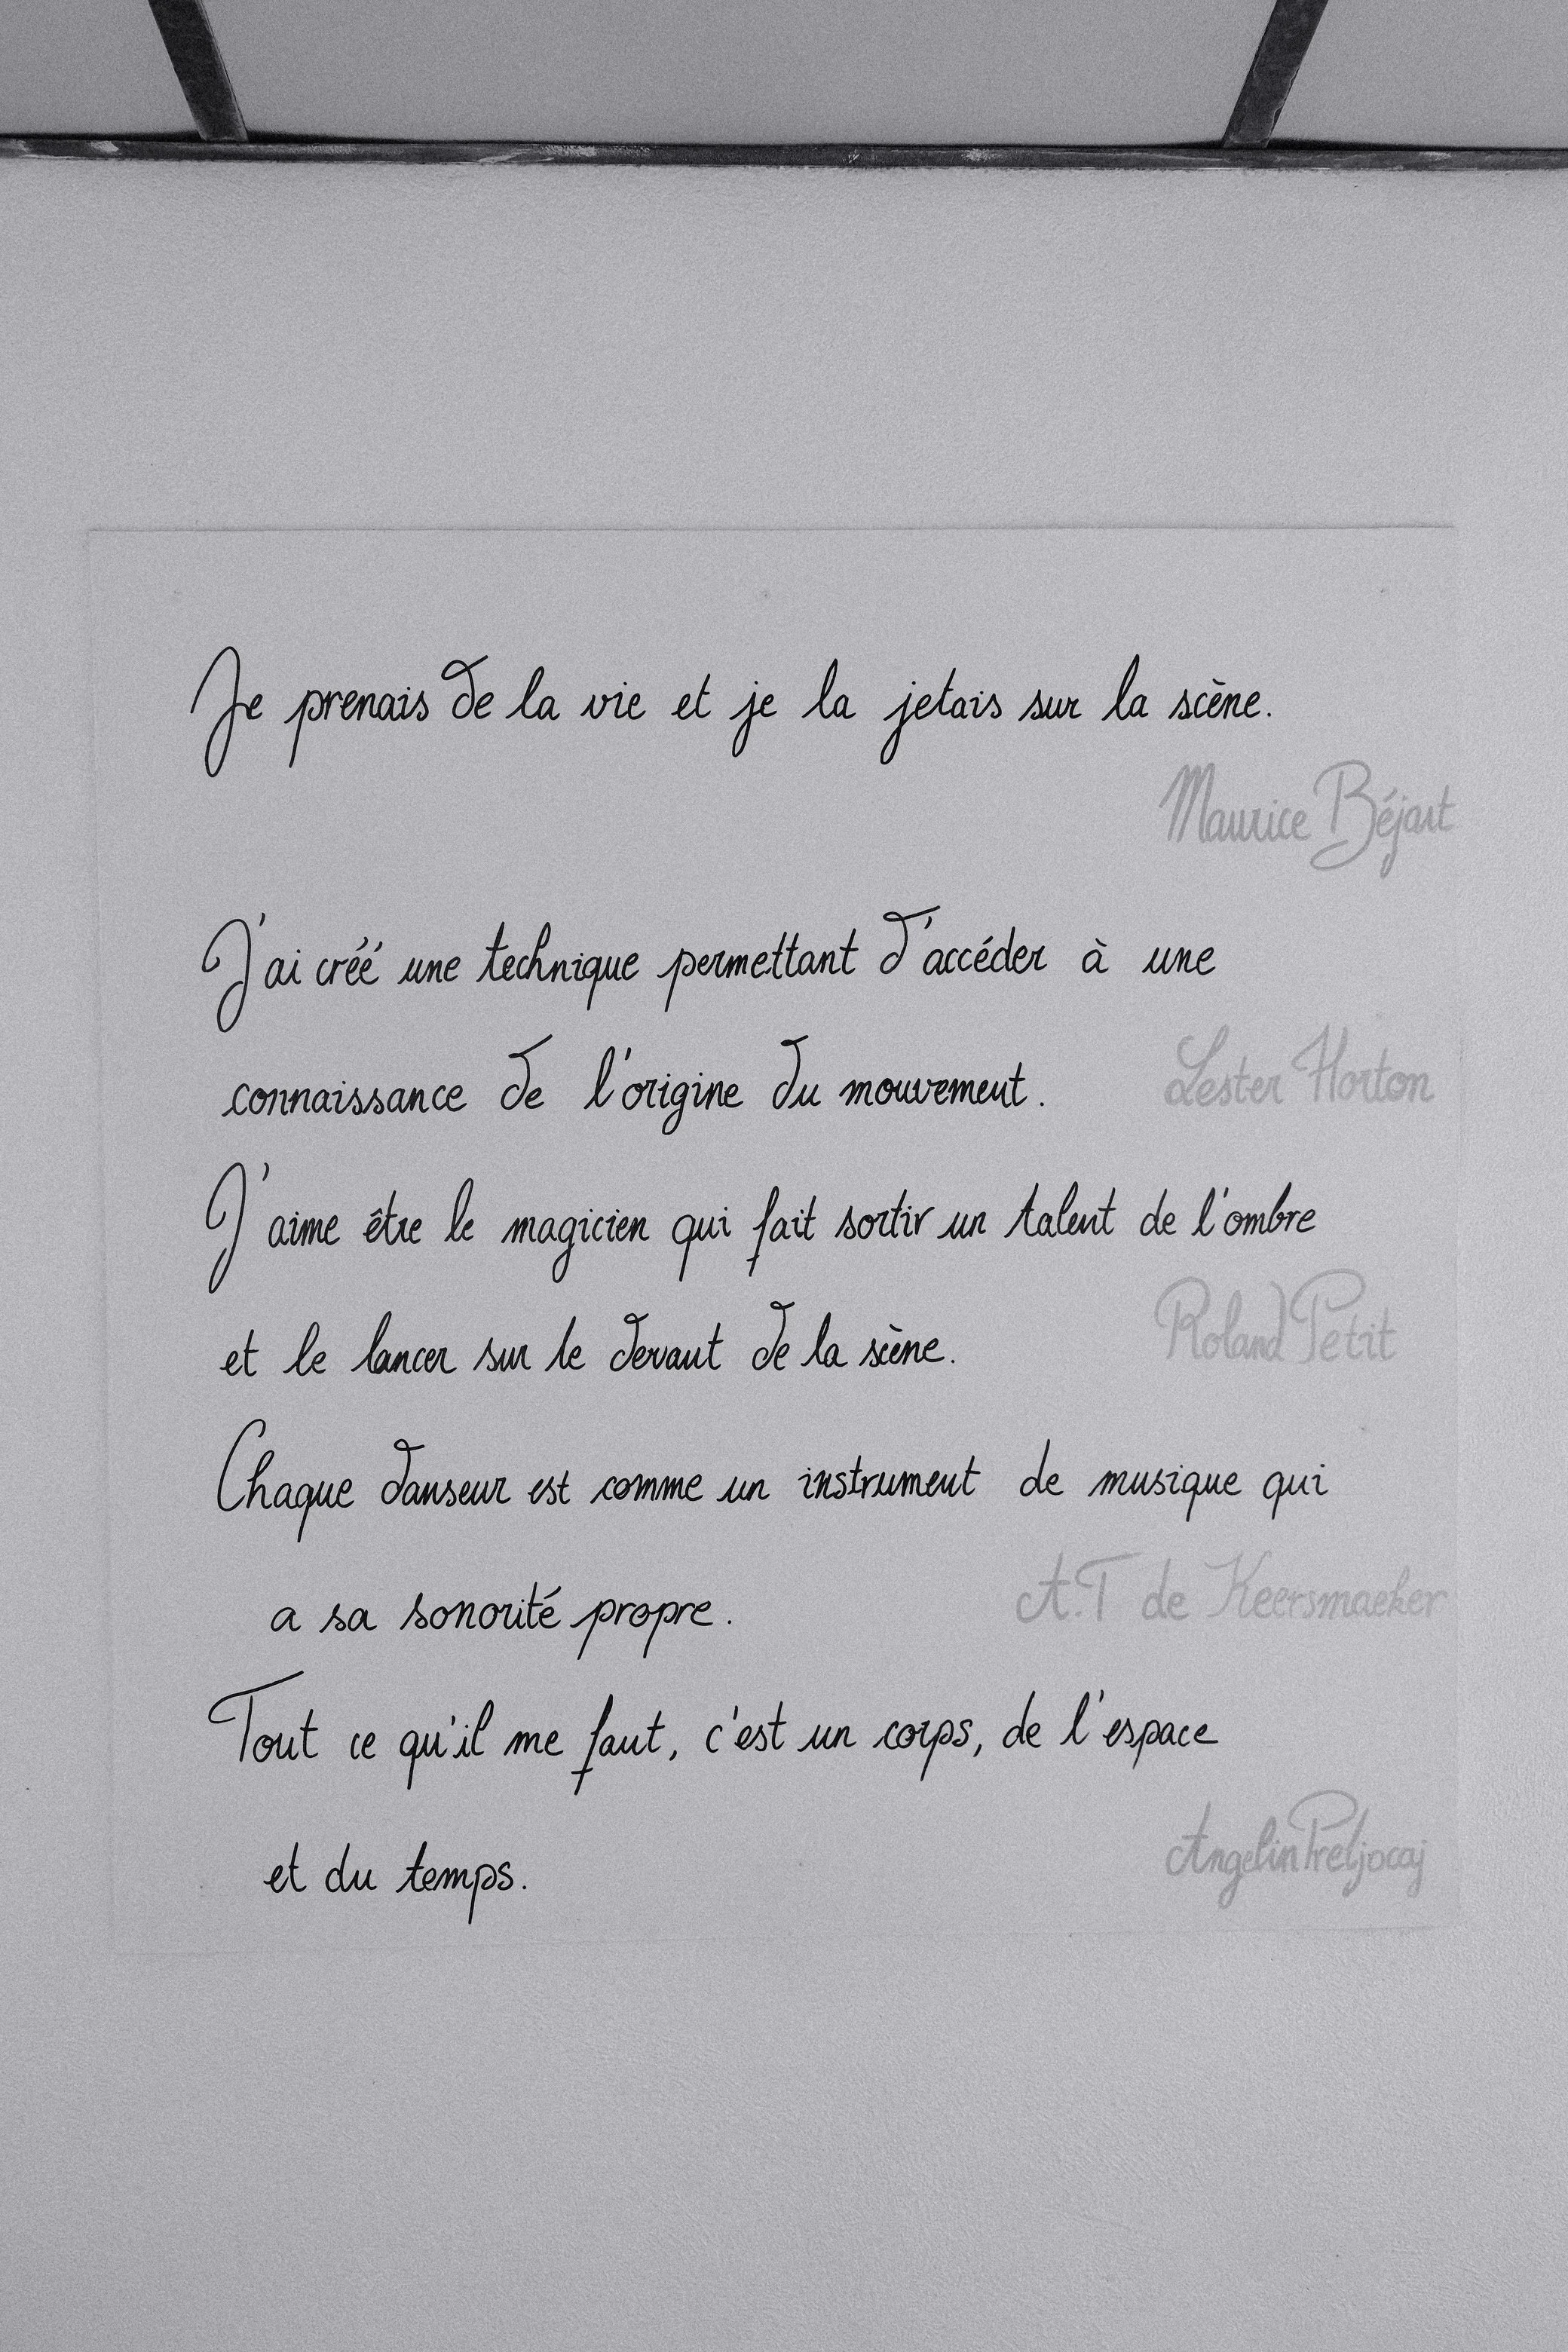 Je prenais de la vie et je la jetais sur la scène.
Maurice Béjart
J'ai créé une technique permettant d'accéder à une
connaissance de l'origine du mouvement.
Lester Horton
J'aime être le magicien qui fait sortir un talent de l'ombre
et le lancer sur le devant de la scène.
Roland Petit
Chaque danseur est comme un instrument de musique qui
a sa sonorité propre.
A.T de Keersmaeker
Tout ce qu'il me faut, c'est un corps, de l'espace
et du temps.
Angelin Preljocaj